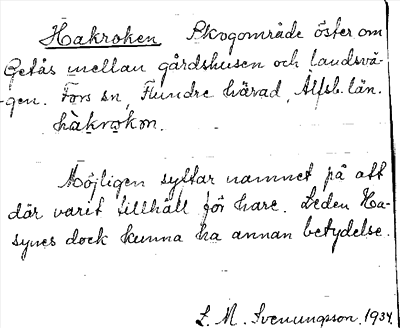 Hakroken Skogområde öster om
Getås mellan gårdshusen och landsvä-
gen. Fors sn, Flundre härad, Älfsb. län.
hàkrok̀on.
Möjligen syftar namnet på att
där varit tillhåll för hare. Leden Ha-
synes dock kunna ha annan betydelse.
L. M. Svenungsson, 1934.